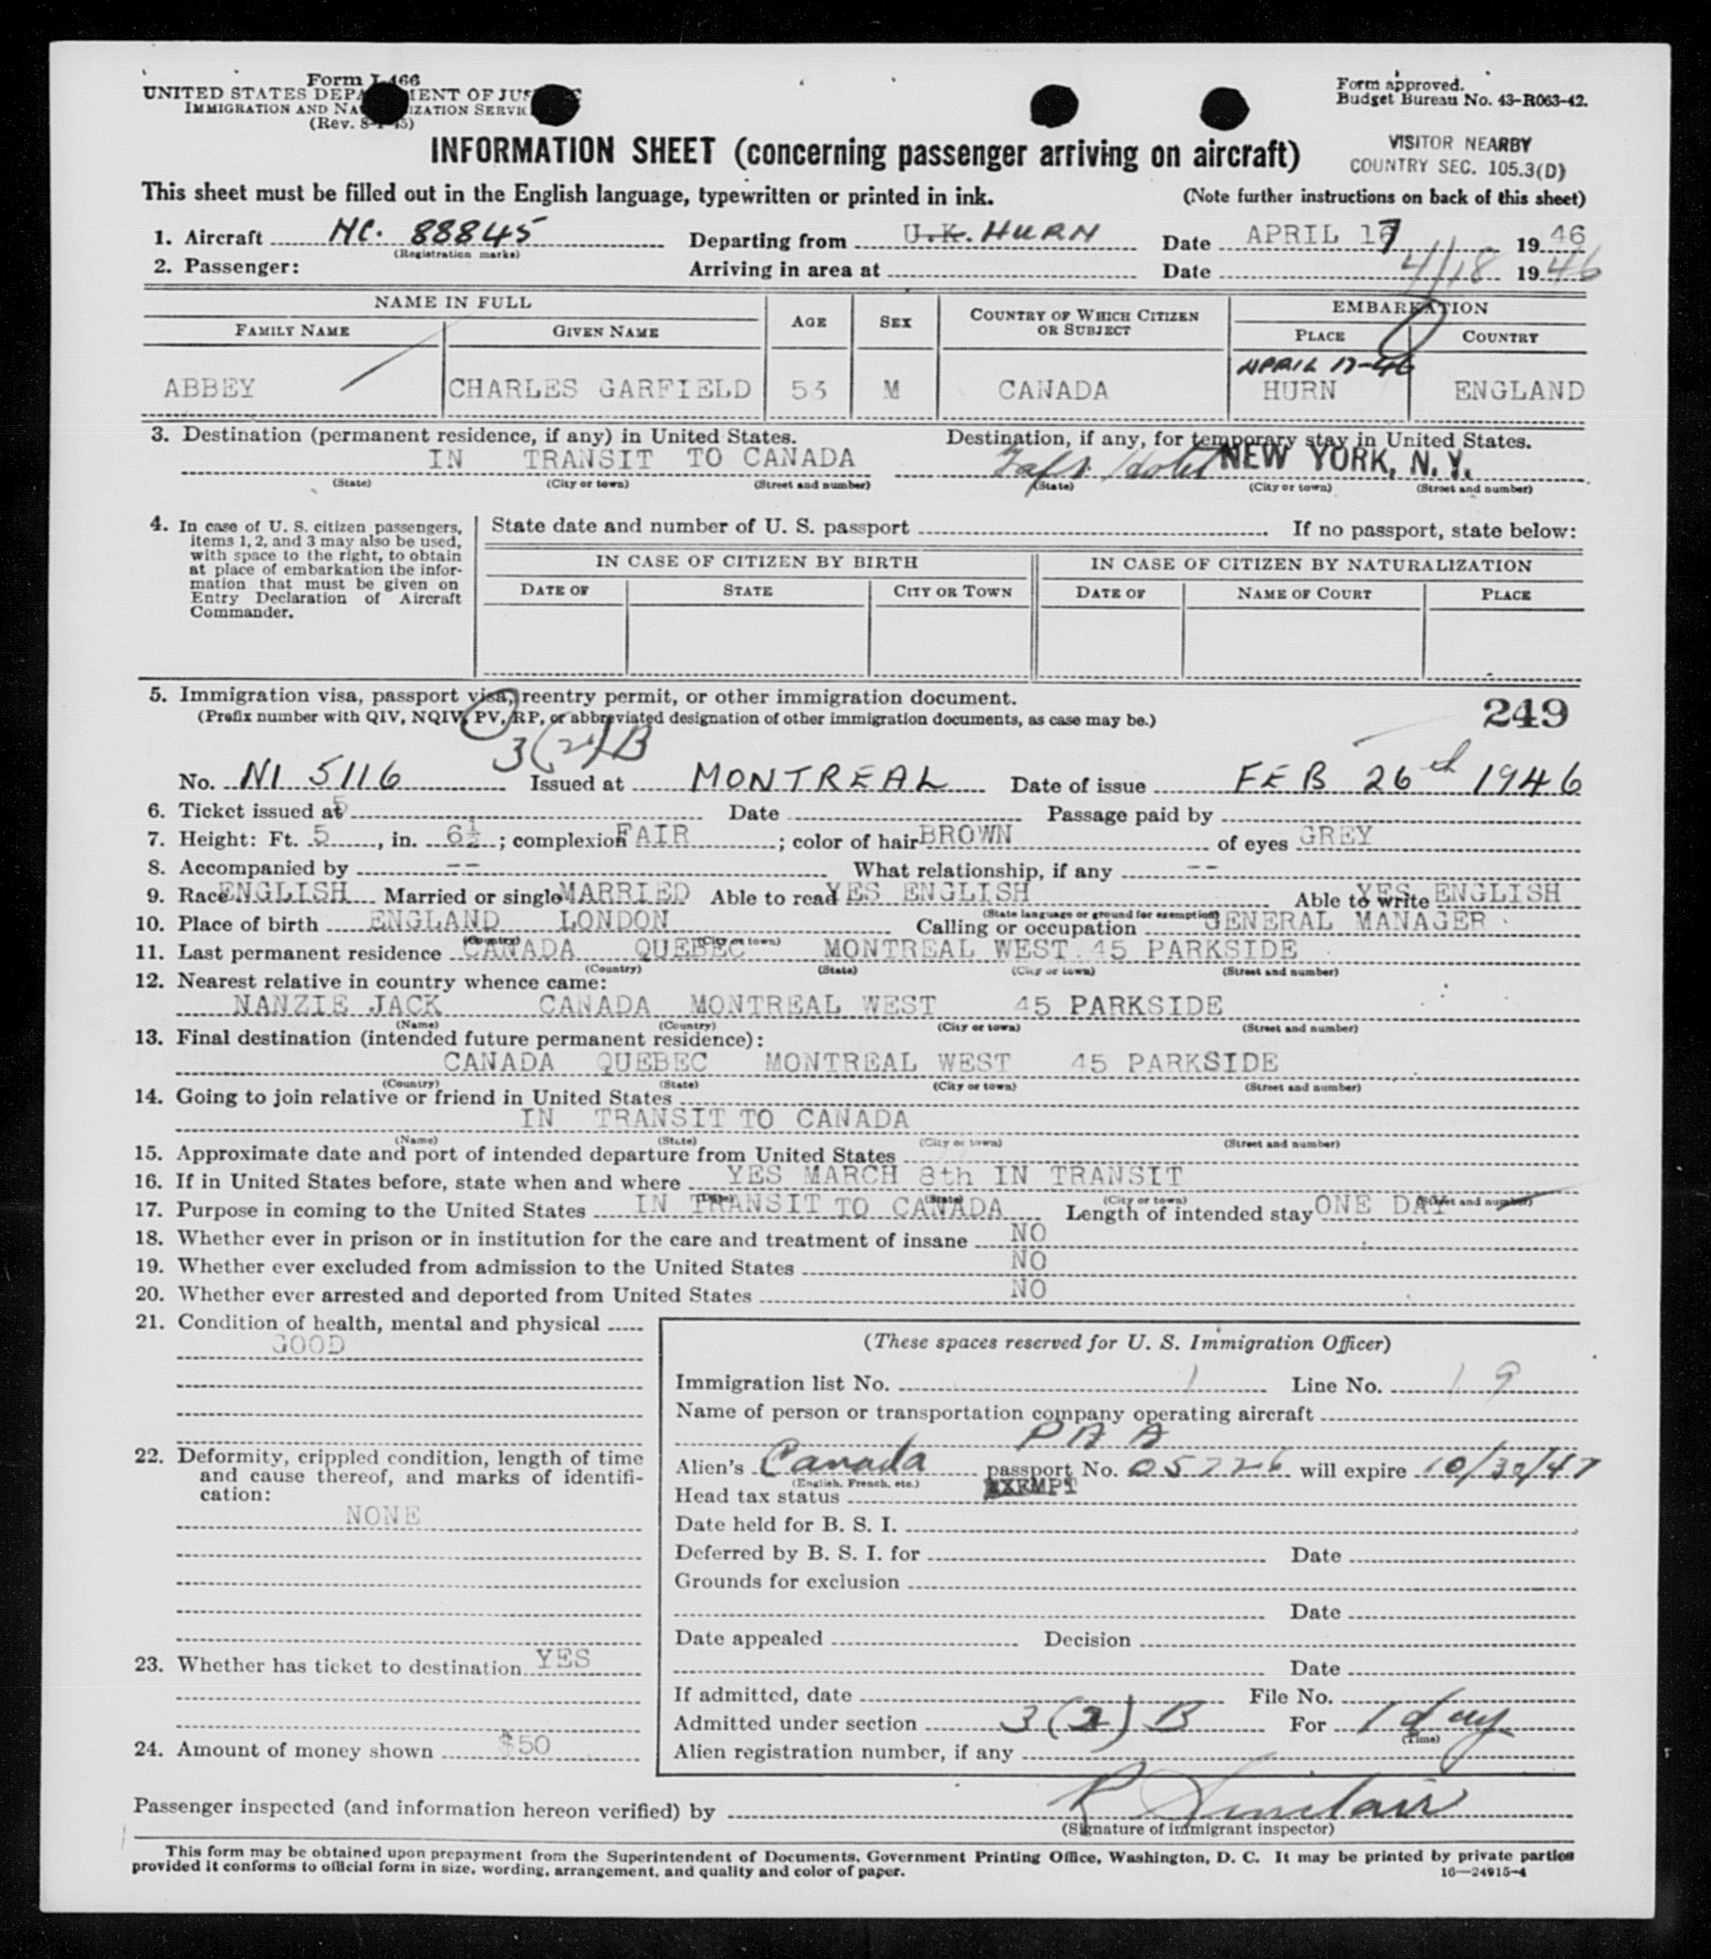 Form I-466
UNITED STATES DEPARTMENT OF JUSTICE
IMMIGRATION AND NATURALIZATION SERVICE
(Rev. 8-1-45)
Form approved.
Budget Bureau No. 43-R063-42.
INFORMATION SHEET (concerning passenger arriving on aircraft)
VISITOR NEARBY
COUNTRY SEC. 105.3(D)
This sheet must be filled out in the English language, typewritten or printed in ink. (Note further instructions on back of this sheet)
1. Aircraft NC. 88845 Departing from U.K. HURN Date APRIL 17 1946
(Registration marks)
2. Passenger: Arriving in area at Date 4/18 1946
NAME IN FULL AGE SEX COUNTRY OF WHICH CITIZEN OR SUBJECT EMBARKATION
FAMILY NAME GIVEN NAME PLACE COUNTRY
APRIL 17-46
ABBEY CHARLES GARFIELD 53 M CANADA HURN ENGLAND
3. Destination (permanent residence, if any) in United States. Destination, if any, for temporary stay in United States.
IN TRANSIT TO CANADA Taft Hotel NEW YORK, N. Y.
(State) (City or town) (Street and number) (State) (City or town) (Street and number)
4. In case of U. S. citizen passengers, items 1, 2, and 3 may also be used, with space to the right, to obtain at place of embarkation the information that must be given on Entry Declaration of Aircraft Commander.
State date and number of U. S. passport If no passport, state below:
IN CASE OF CITIZEN BY BIRTH IN CASE OF CITIZEN BY NATURALIZATION
DATE OF STATE CITY OR TOWN DATE OF NAME OF COURT PLACE
5. Immigration visa, passport visa, reentry permit, or other immigration document.
(Prefix number with QIV, NQIV, PV, RP, or abbreviated designation of other immigration documents, as case may be.) 249
3(2)B
No. NI 5116 Issued at MONTREAL Date of issue FEB 26th 1946
6. Ticket issued at Date Passage paid by
7. Height: Ft. 5, in. 6½; complexion FAIR; color of hair BROWN of eyes GREY
8. Accompanied by -- What relationship, if any --
9. Race ENGLISH Married or single MARRIED Able to read YES ENGLISH Able to write YES ENGLISH
(State language or ground for exemption)
10. Place of birth ENGLAND LONDON Calling or occupation GENERAL MANAGER
(Country) (City or town)
11. Last permanent residence CANADA QUEBEC MONTREAL WEST 45 PARKSIDE
(Country) (State) (City or town) (Street and number)
12. Nearest relative in country whence came:
NANZIE JACK CANADA MONTREAL WEST 45 PARKSIDE
(Name) (Country) (City or town) (Street and number)
13. Final destination (intended future permanent residence):
CANADA QUEBEC MONTREAL WEST 45 PARKSIDE
(Country) (State) (City or town) (Street and number)
14. Going to join relative or friend in United States
IN TRANSIT TO CANADA
(Name) (State) (City or town) (Street and number)
15. Approximate date and port of intended departure from United States
16. If in United States before, state when and where YES MARCH 8th IN TRANSIT
(Date) (State) (City or town) (Street and number)
17. Purpose in coming to the United States IN TRANSIT TO CANADA Length of intended stay ONE DAY
18. Whether ever in prison or in institution for the care and treatment of insane NO
19. Whether ever excluded from admission to the United States NO
20. Whether ever arrested and deported from United States NO
21. Condition of health, mental and physical
GOOD
22. Deformity, crippled condition, length of time and cause thereof, and marks of identification:
NONE
23. Whether has ticket to destination YES
24. Amount of money shown $50
(These spaces reserved for U. S. Immigration Officer)
Immigration list No. 1 Line No. 19
Name of person or transportation company operating aircraft
PAA
Alien's Canada passport No. 05726 will expire 10/30/47
(English, French, etc.)
Head tax status EXEMPT
Date held for B. S. I.
Deferred by B. S. I. for Date
Grounds for exclusion
Date
Date appealed Decision
Date
If admitted, date File No.
Admitted under section 3(2)B For 1 day
(Time)
Alien registration number, if any
Passenger inspected (and information hereon verified) by R Sinclair
(Signature of immigrant inspector)
This form may be obtained upon prepayment from the Superintendent of Documents, Government Printing Office, Washington, D. C. It may be printed by private parties
provided it conforms to official form in size, wording, arrangement, and quality and color of paper. 16—24915-4